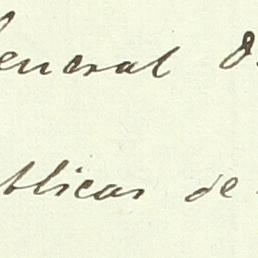 eneral D
blicas de